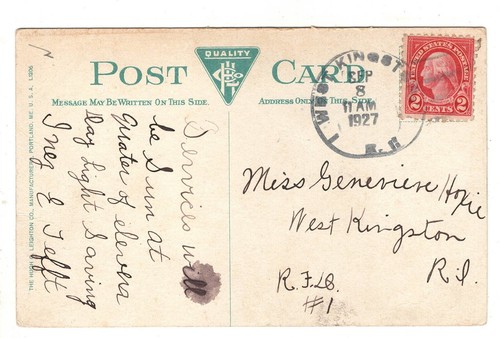 QUALITY
POST CARD
MESSAGE MAY BE WRITTEN ON THIS SIDE.
ADDRESS ONLY ON THIS SIDE.
THE HUGH C. LEIGHTON CO., MANUFACTURERS, PORTLAND, ME. U.S.A.
Services will
be Sun at
Quater of eleven
Day Light Saving
Inez E Tefft
WEST KINGSTON
SEP
8
11 AM
1927
R.I.
UNITED STATES POSTAGE
2 CENTS 2
Miss Genevieve
West Kingston
R.I.
R.F.D.
#1